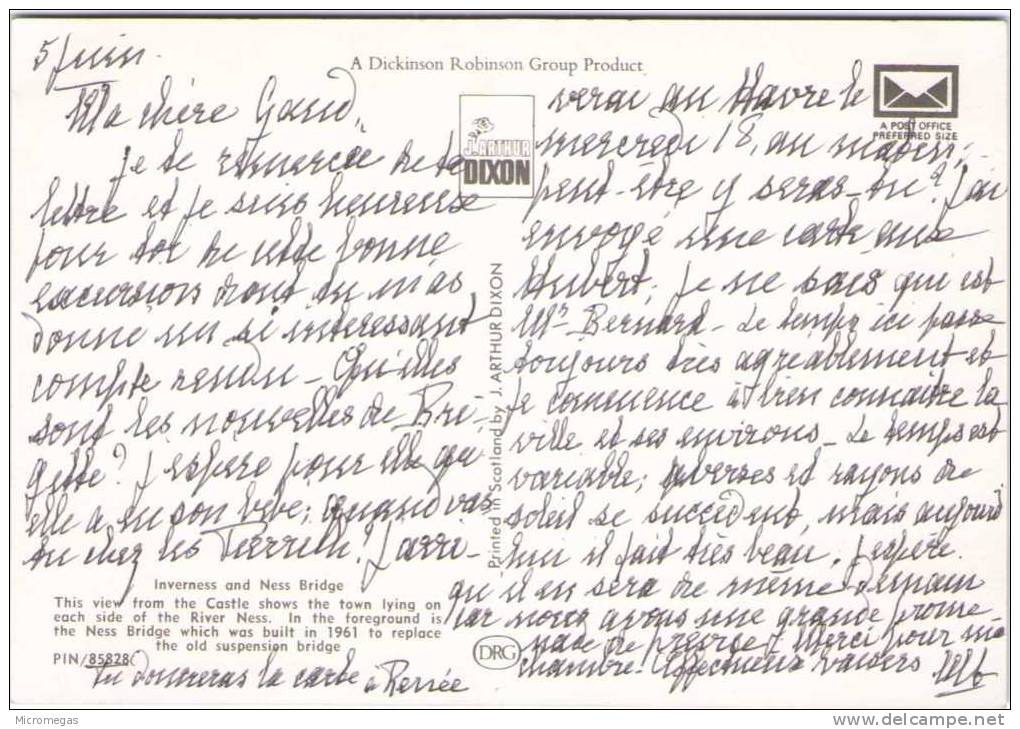 5 Juin.
A Dickinson Robinson Group Product
Ma chère
Je te remercie de ta
lettre et je suis heureuse
pour toi de cette bonne
excursion dont tu m'as
donné un si interessant
compte rendu - Quelles
sont les nouvelles de Bri-
gitte? J'espère pour elle qu'
elle a eu son bébé; quand vas
tu chez les J'arri-
verai au Havre le
mercredi 18, au matin;
peut-être y seras-tu? J'ai
envoyé une carte aux
Hubert; je ne sais qui est
Mr Bernard - Le temps ici passe
toujours très agréablement et
je commence à bien connaitre la
ville et ses environs - Le temps est
variable; averses et rayons de
soleil se succèdent, mais aujourd'
hui il fait très beau. J'espère
qu'il en sera de même demain
car nous avons une grande prome
nade de prévue. Merci pour ma
chambre. Affectueux baisers
Tu donneras la carte à Renée
J. ARTHUR
DIXON
A POST OFFICE
PREFERRED SIZE
Printed in Scotland by J. ARTHUR DIXON
Inverness and Ness Bridge
This view from the Castle shows the town lying on
each side of the River Ness. In the foreground is
the Ness Bridge which was built in 1961 to replace
the old suspension bridge
PIN/85828
DRG
Micromegas
delcampe.net